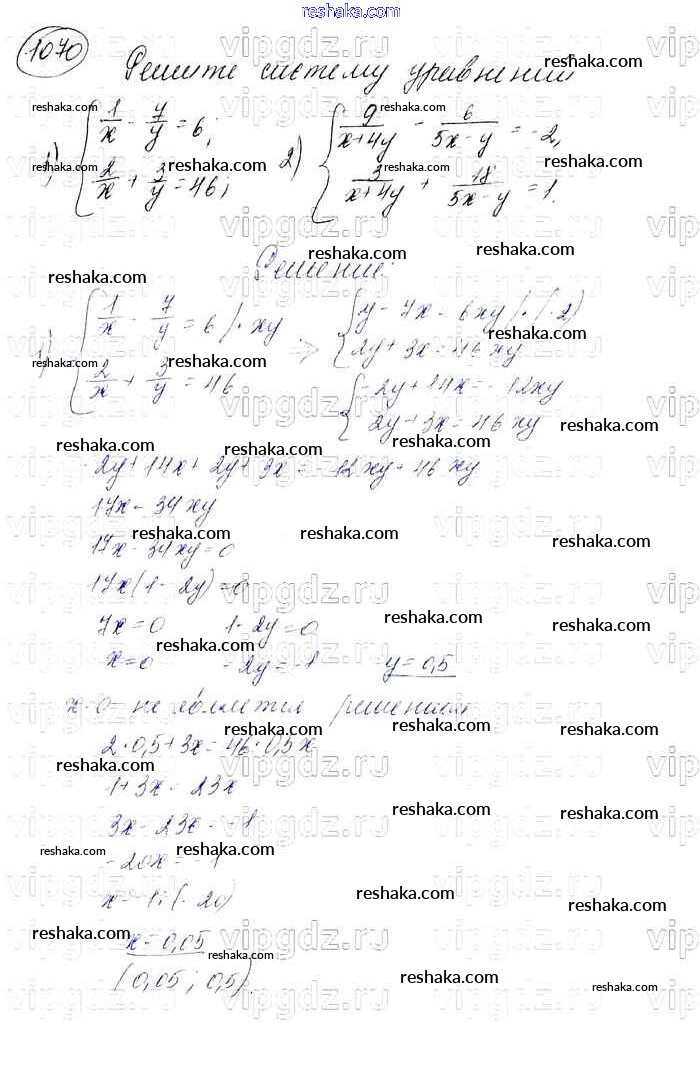 reshaka.com
1070
Решите систему уравнений
1) { 1/x - 7/y = 6; 2/x + 3/y = 46;
2) { 9/(x+4y) - 6/(5x-y) = -2, 3/(x+4y) + 18/(5x-y) = 1.
Решение:
1) { 1/x - 7/y = 6 /· xy 2/x + 3/y = 46
=> { y - 7x = 6xy /·(-2) 2y + 3x = 46xy
{ -2y + 14x = -12xy 2y + 3x = 46xy
-2y + 14x + 2y + 3x = -12xy + 46xy
17x = 34xy
17x - 34xy = 0
17x(1 - 2y) = 0
7x = 0 1 - 2y = 0
x = 0 -2y = -1 y = 0,5
x = 0 - не является решением
2·0,5 + 3x = 46·0,5x
1 + 3x = 23x
3x - 23x = -1
-20x = -1
x = -1 : (-20)
x = 0,05
(0,05 ; 0,5).